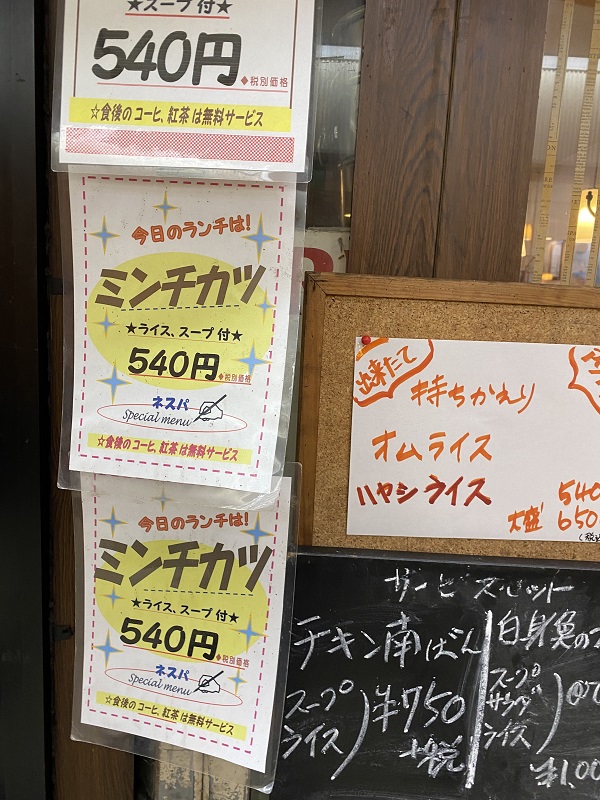 ★スープ付★
540円
◆税別価格
☆食後のコーヒ、紅茶は無料サービス
今日のランチは!
ミンチカツ
★ライス、スープ付★
540円
◆税別価格
ネスパ
Special menu
☆食後のコーヒ、紅茶は無料サービス
今日のランチは!
ミンチカツ
★ライス、スープ付★
540円
◆税別価格
ネスパ
Special menu
☆食後のコーヒ、紅茶は無料サービス
出来たて
持ちかえり
オムライス
ハヤシライス
540
大盛 650
サービスセット
チキン南ばん
スープ
ライス
¥750
+税
白身魚の
スープ
サラダ
ライス
¥1,00